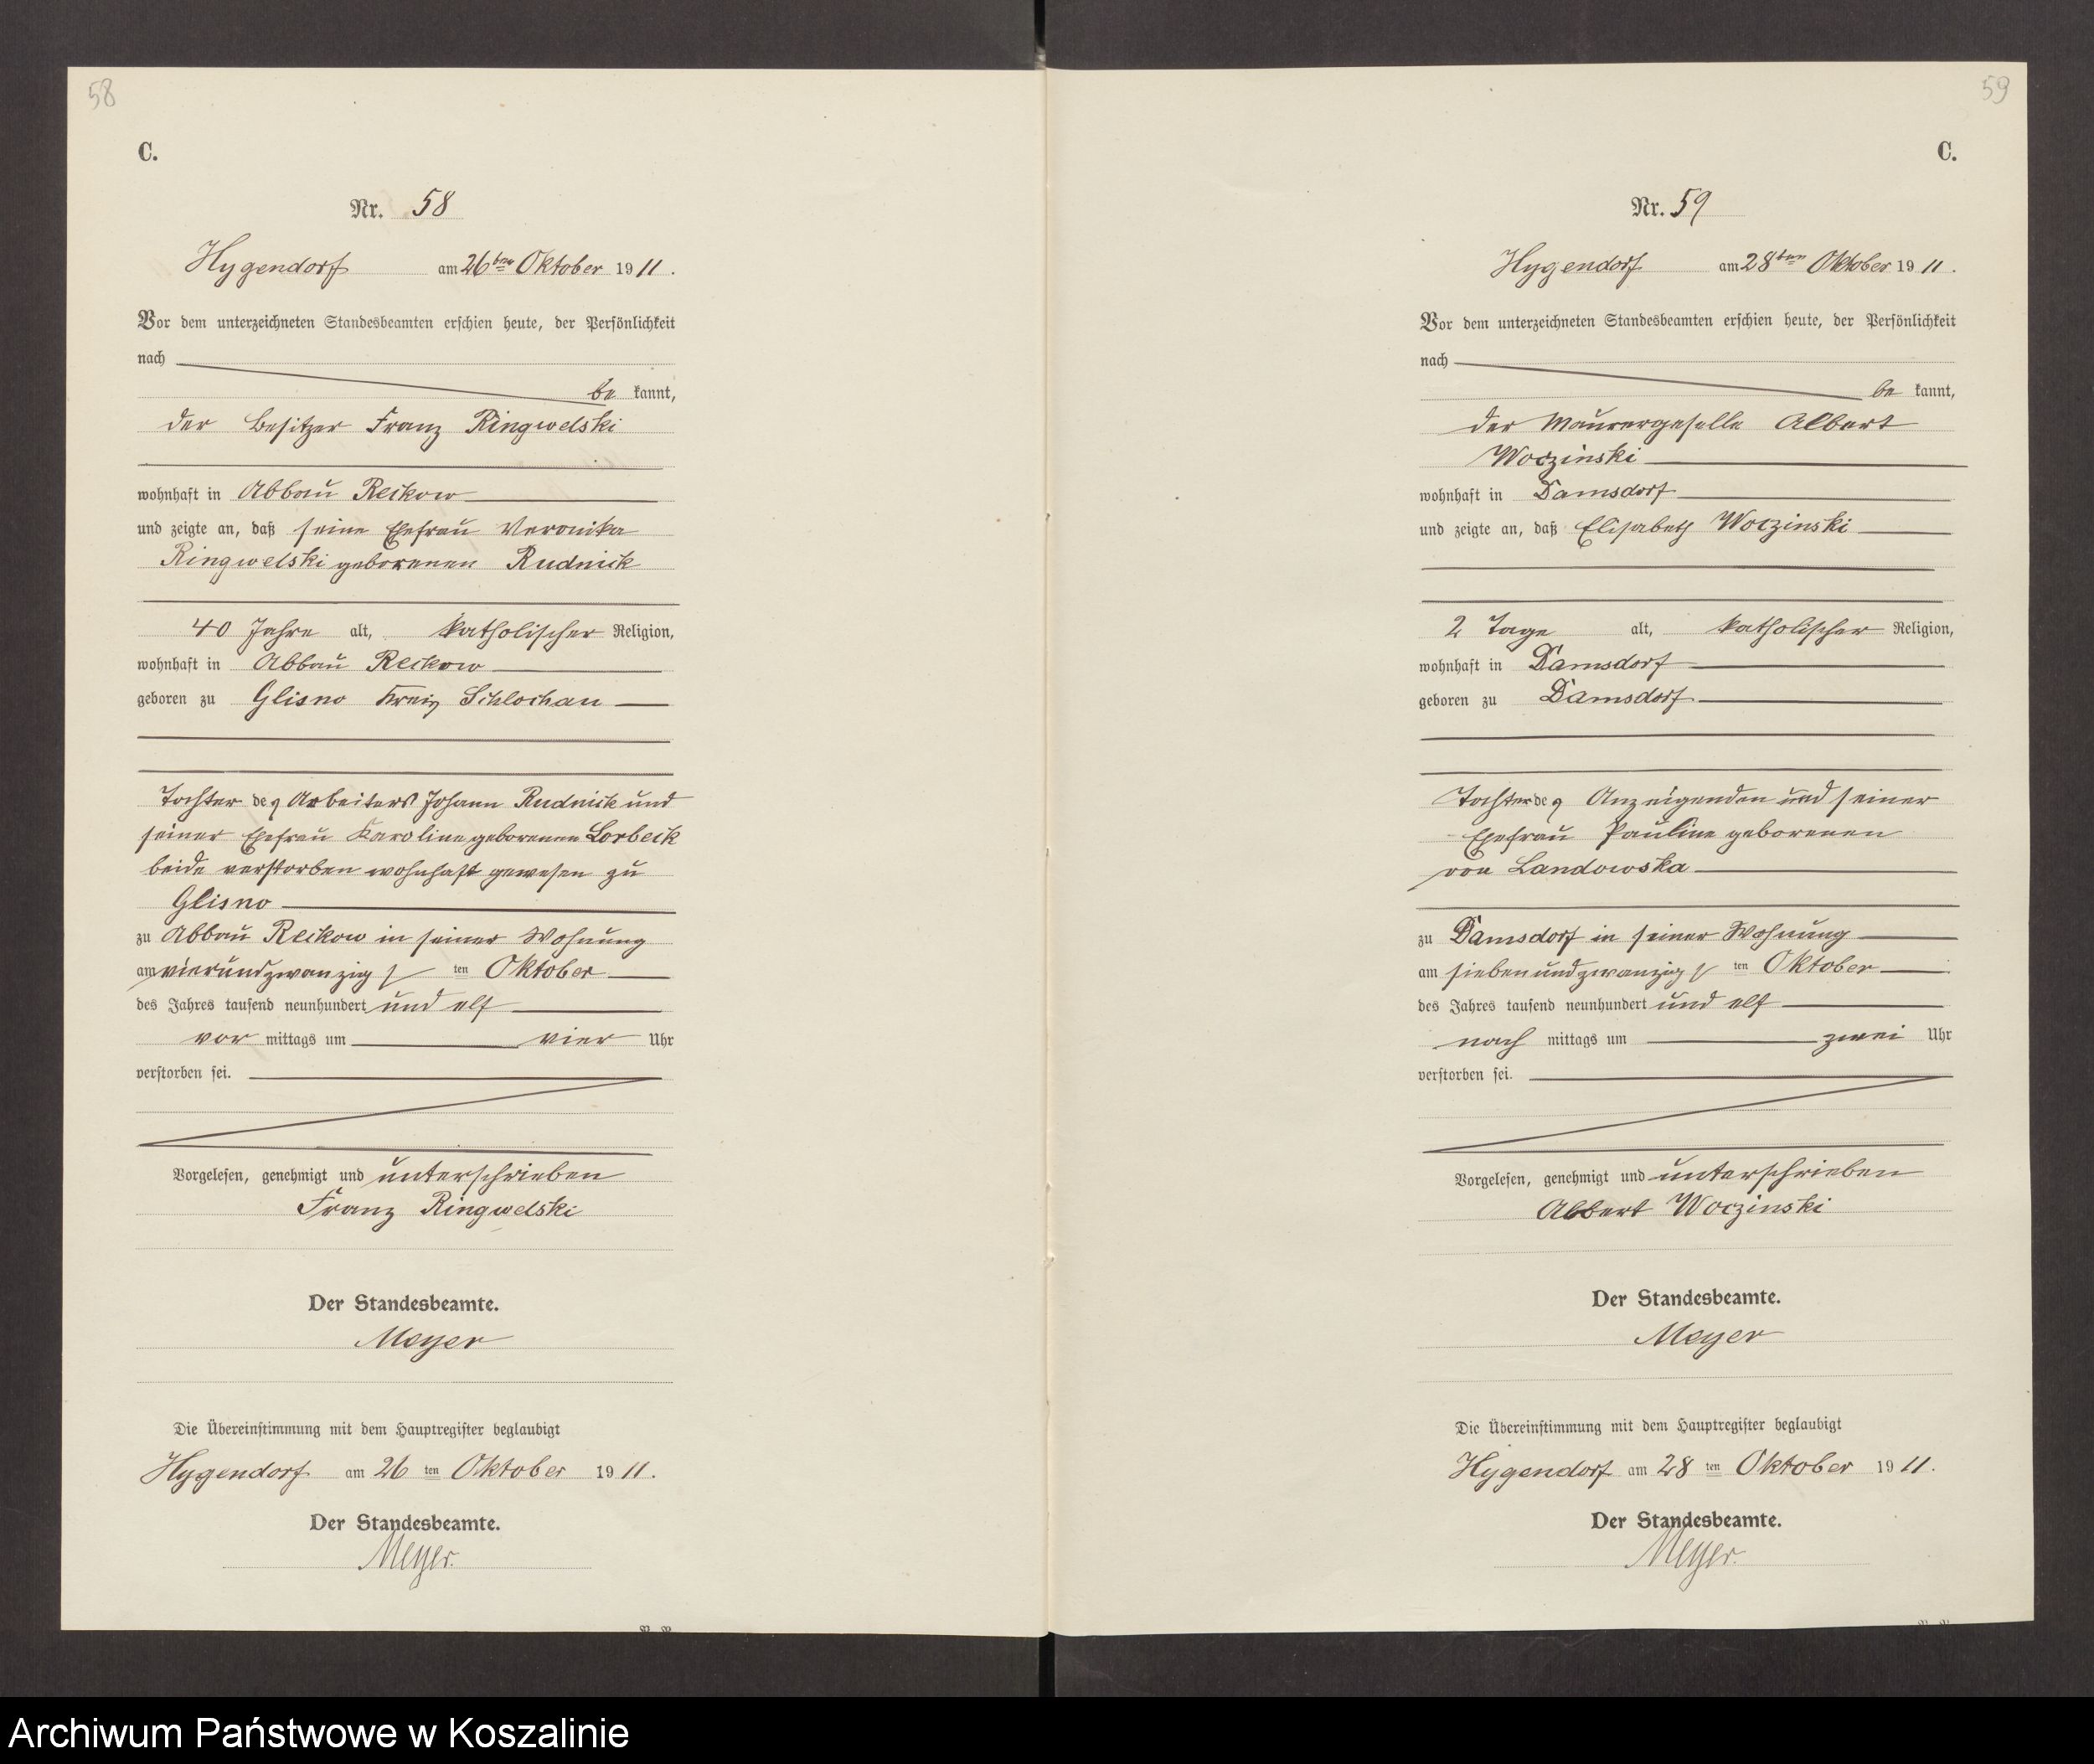 58
C.
Nr. 58
Hygendorf am 26ten Oktober 1911.
Vor dem unterzeichneten Standesbeamten erschien heute, der Persönlichkeit
nach
be kannt,
der Besitzer Franz Ringwelski
wohnhaft in Abbau Reckow
und zeigte an, daß seine Ehefrau Veronika
Ringwelski geborenen Rudnick
40 Jahre alt, katholischer Religion,
wohnhaft in Abbau Reckow
geboren zu Glisno Kreis Schlochau
Tochter des Arbeiters Johann Rudnick und
seiner Ehefrau Karoline geborenen Lorbeck
beide verstorben wohnhaft gewesen zu
Glisno
zu Abbau Reckow in seiner Wohnung
am vierundzwanzigsten Oktober
des Jahres tausend neunhundert und elf
vor mittags um vier Uhr
verstorben sei.
Vorgelesen, genehmigt und unterschrieben
Franz Ringwelski
Der Standesbeamte.
Meyer
Die Übereinstimmung mit dem Hauptregister beglaubigt
Hygendorf am 26ten Oktober 1911.
Der Standesbeamte.
Meyer.
59
C.
Nr. 59
Hygendorf am 28ten Oktober 1911.
Vor dem unterzeichneten Standesbeamten erschien heute, der Persönlichkeit
nach
be kannt,
der Maurergeselle Albert
Woczinski
wohnhaft in Damsdorf
und zeigte an, daß Elisabeth Woczinski
2 Tage alt, katholischer Religion,
wohnhaft in Damsdorf
geboren zu Damsdorf
Tochter des Anzeigenden und seiner
Ehefrau Pauline geborenen
von Landowska
zu Damsdorf in seiner Wohnung
am siebenundzwanzigsten Oktober
des Jahres tausend neunhundert und elf
nach mittags um zwei Uhr
verstorben sei.
Vorgelesen, genehmigt und unterschrieben
Albert Woczinski
Der Standesbeamte.
Meyer
Die Übereinstimmung mit dem Hauptregister beglaubigt
Hygendorf am 28ten Oktober 1911.
Der Standesbeamte.
Meyer.
Archiwum Państwowe w Koszalinie